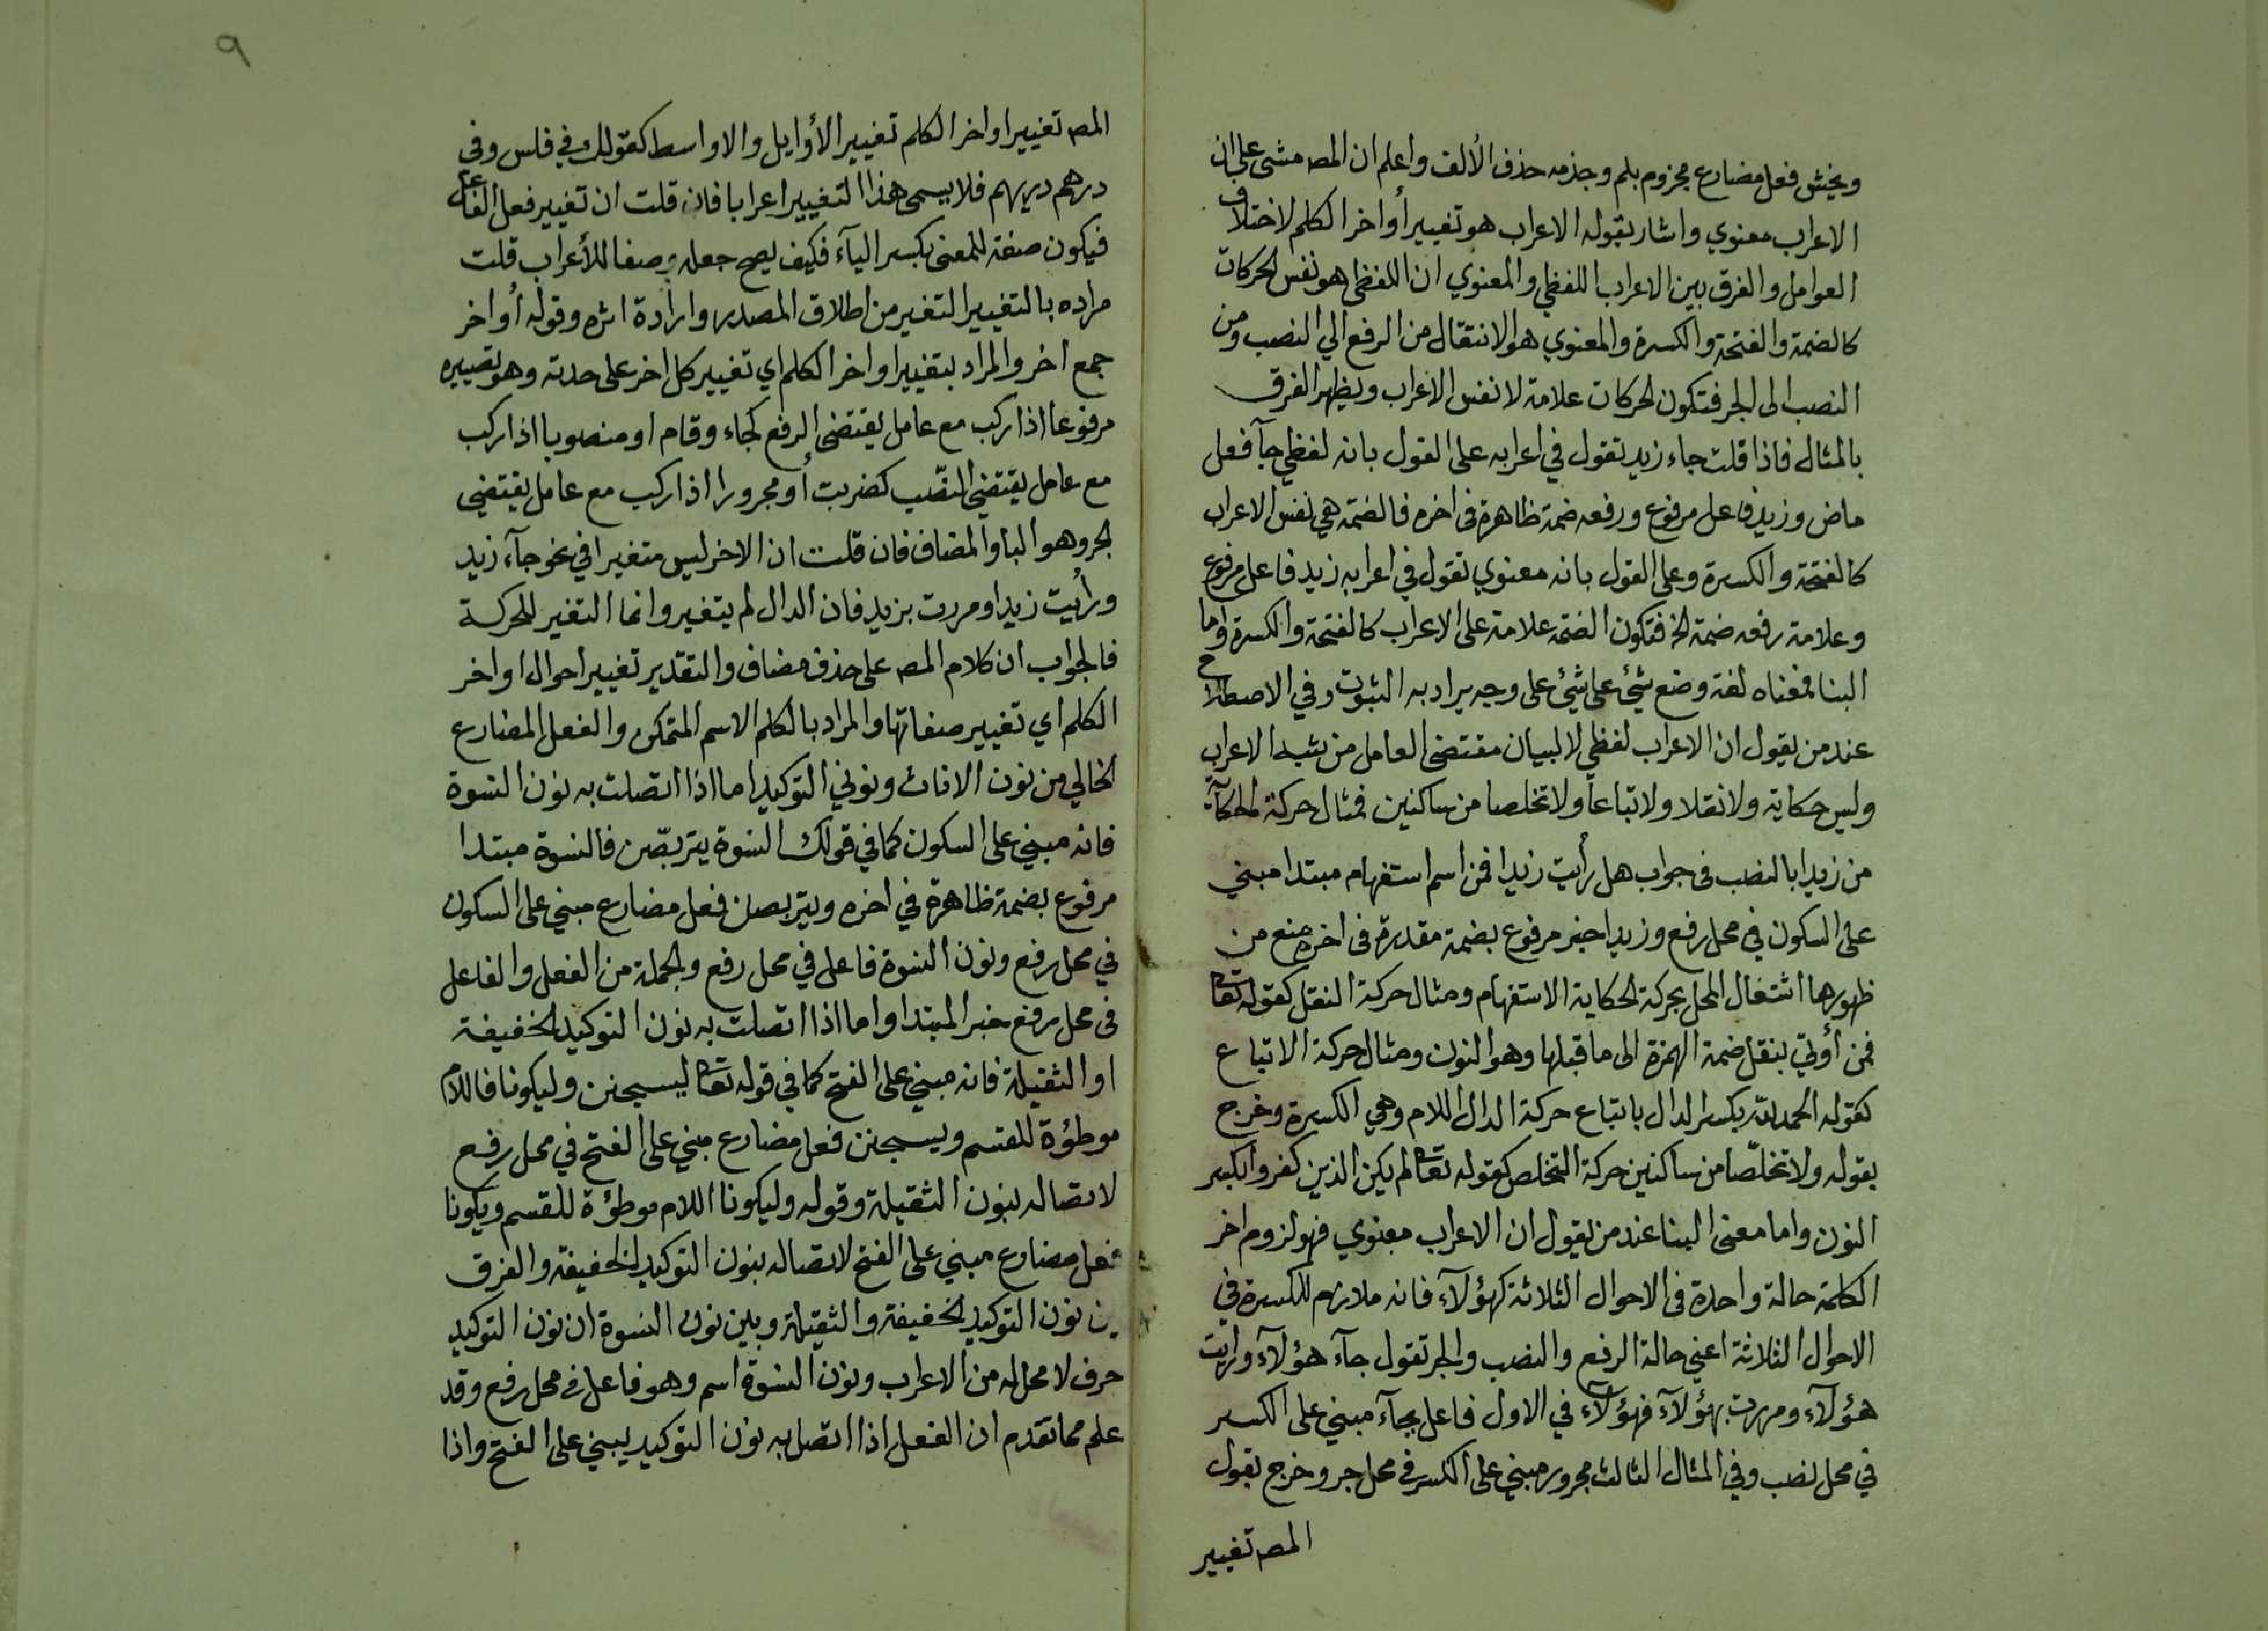 ويخش فعل مضارع مجزوم بلم وجزمه حذف الألف واعلم ان المصـ مشى على ان
الاعراب معنوي واشار بقوله الاعراب هو تغيير أواخر الكلم لاختلاف
العوامل والفرق بين الاعراب اللفظي والمعنوي ان اللفظى هو نفس الحركات
كالضمة والفتحة والكسرة والمعنوي هو الانتقال من الرفع الي النصب ومن
النصب الى الجر فتكون الحركات علامة لا نفس الاعراب ويظهر الفرق
بالمثال فاذا قلت جاء زيد تقول في اعرابه على القول بانه لفظي جآ فعل
ماض وزيد فاعل مرفوع ورفعه ضمة ظاهرة فى اخره فالضمة هي نفس الاعراب
كالفتحة والكسرة وعلى القول بانه معنوي تقول في اعرابه زيد فاعل مرفوع
وعلامة رفعه ضمة الخ فتكون الضمة علامة على الاعراب كالفتحة والكسرة واما
البنا فمعناه لغة وضع شئ على شئ على وجه يراد به الثبوت وفي الاصطلاح
عند من يقول ان الاعراب لفظي لا لبيان مقتضى العامل من شبه الاعراب
وليس حكاية ولا نقلا ولا تباعا ولا تخلصا من ساكنين فمثال حركة الحكآية
من زيدا بالنصب فى جواب هل رأيت زيدا فمن اسم استفهام مبتدا مبني
على السكون في محل رفع وزيدا خبر مرفوع بضمة مقدرة فى اخره منع من
ظهورها اشتغال المحل بحركة الحكاية الاستفهام ومثال حركة النقل كقوله تعالى
فمن أوتي بنقل ضمة الهمزة الى ما قبلها وهو النون ومثال حركة الاتباع
كقوله الحمد لله بكسر الدال باتباع حركة الدال اللام وهي الكسرة وخرج
بقوله ولا تخلّصا من ساكنين حركة التخلص كقوله تعالى لم يكن الذين كفروا بكسر
النون واما معنى البنا عند من يقول ان الاعراب معنوي فهو لزوم اخر
الكلمة حالة واحدة فى الاحوال الثلاثة كهؤلآء فانه ملازم للكسرة في
الاحوال الثلاثة اعني حالة الرفع والنصب والجر تقول جآء هؤلآء ورايت
هؤلآء ومررت بهؤلآء فهؤلآء في الاول فاعل بجآء مبني على الكسر
في محل نصب وفي المثال الثالث مجرور مبني على الكسر في محل جر وخرج بقول
المصـ تغيير
٩
المصـ تغيير اواخر الكلم تغيير الأوايل والاواسط كقولك في فلس وفى
درهم دريهم فلا يسمى هذا التغيير اعرابا فان قلت ان تغيير فعل الفاعل
فيكون صفة للمعنى بكسر اليآء فكيف يصح جعله وصفا للأعراب قلت
مراده بالتغيير التغير من اطلاق المصدر وارادة اثره وقوله أواخر
جمع اخر والمراد بتغيير اواخر الكلم اي تغيير كل اخر على حدته وهو تصييره
مرفوعا اذا ركب مع عامل يقتضى الرفع كجاء وقام او منصوبا اذا ركب
مع عامل يقتضي النصّب كضربت أو مجرورا اذا ركب مع عامل يقتضي
الجر وهو البا والمضاف فان قلت ان الاخر ليس متغيرا في نحو جآء زيد
ورأيت زيدا ومررت بزيد فان الدال لم يتغير وانما التغير للحركة
فالجواب ان كلام المصـ على حذف مضاف والتقدير تغيير احوال اواخر
الكلم اي تغيير صفاتها والمراد بالكلم الاسم المتمكن والفعل المضارع
الخالي من نون الاناث ونوني التوكيد اما اذا اتصلت به نون النسوة
فانه مبني على السكون كما في قولك النسوة يتربصّن فالنسوة مبتدا
مرفوع بضمة ظاهرة في اخره ويتربصن فعل مضارع مبني على السكون
في محل رفع ونون النسوة فاعل في محل رفع والجملة من الفعل والفاعل
فى محل رفع خبر المبتدا واما اذا اتصلت به نون التوكيد الخفيفة
او الثقيلة فانه مبني على الفتح كما في قوله تعالى ليسجنن وليكونا فاللام
موطؤة للقسم ويسجنن فعل مضارع مبني على الفتح في محل رفع
لاتصاله بنون الثقيلة وقوله وليكونا اللام موطؤة للقسم ويكونا
فعل مضارع مبني على الفتح لاتصاله بنون التوكيد الخفيفة والفرق
بين نون التوكيد الخفيفة والثقيلة وبين نون النسوة ان نون التوكيد
حرف لا محل له من الاعراب ونون النسوة اسم وهو فاعل في محل رفع وقد
علم مما تقدم ان الفعل اذا اتصل به نون التوكيد يبني على الفتح واذا